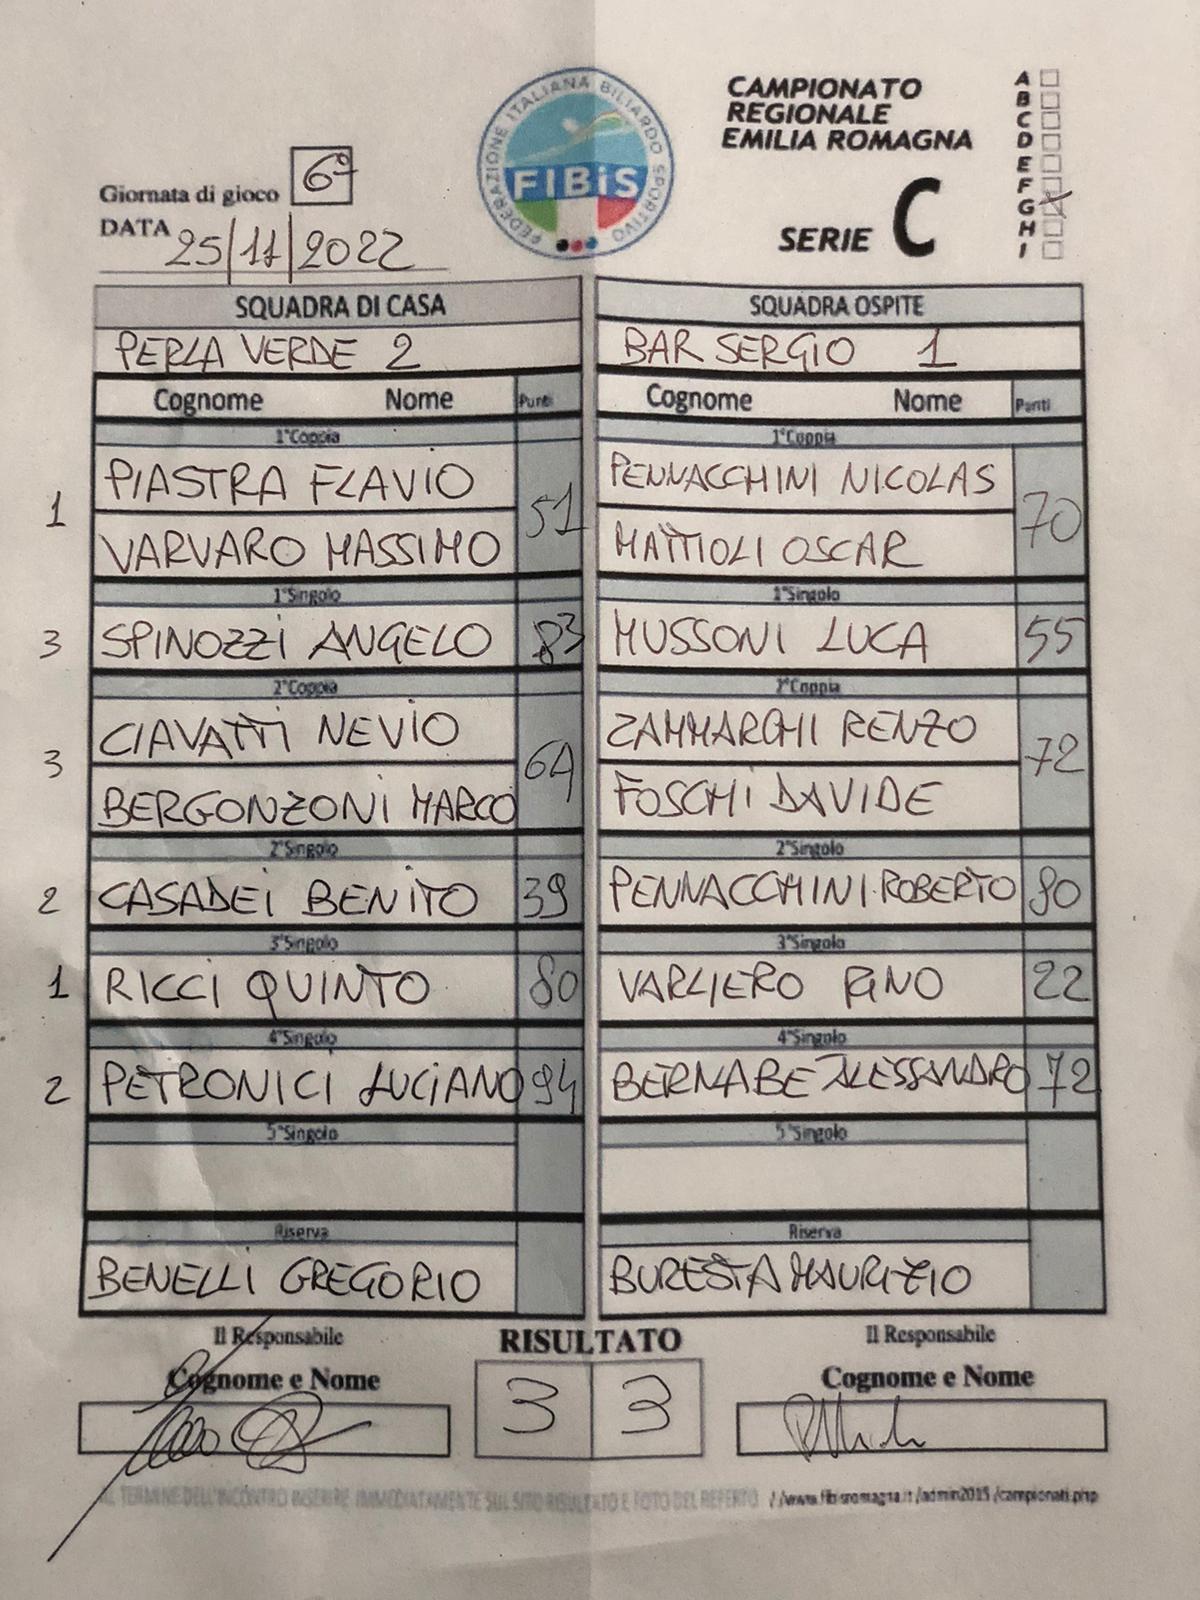 CAMPIONATO
REGIONALE
EMILIA ROMAGNA
SERIE C
A
B
C
D
E
F
G
H
I
FEDERAZIONE ITALIANA BILIARDO SPORTIVO
FIBiS
Giornata di gioco 6ª
DATA 25/11/2022
SQUADRA DI CASA SQUADRA OSPITE
PERLA VERDE 2 BAR SERGIO 1
Cognome Nome Punti Cognome Nome Punti
1°Coppia 1°Coppia
PIASTRA FLAVIO PENNACCHINI NICOLAS
1 51 70
VARVARO MASSIMO MATTIOLI OSCAR
1°Singolo 1°Singolo
3 SPINOZZI ANGELO 83 MUSSONI LUCA 55
2°Coppia 2°Coppia
CIAVATTI NEVIO ZAMMARCHI RENZO
3 64 72
BERGONZONI MARCO FOSCHI DAVIDE
2°Singolo 2°Singolo
2 CASADEI BENITO 39 PENNACCHINI ROBERTO 80
3°Singolo 3°Singolo
1 RICCI QUINTO 80 VARLIERO PINO 22
4°Singolo 4°Singolo
2 PETRONICI LUCIANO 94 BERNABE ALESSANDRO 72
5°Singolo 5°Singolo
Riserva Riserva
BENELLI GREGORIO BURESTA MAURIZIO
Il Responsabile RISULTATO Il Responsabile
Cognome e Nome 3 3 Cognome e Nome
AL TERMINE DELL'INCONTRO INSERIRE IMMEDIATAMENTE SUL SITO RISULTATO E FOTO DEL REFERTO //www.fibisromagna.it/admin2015/campionati.php